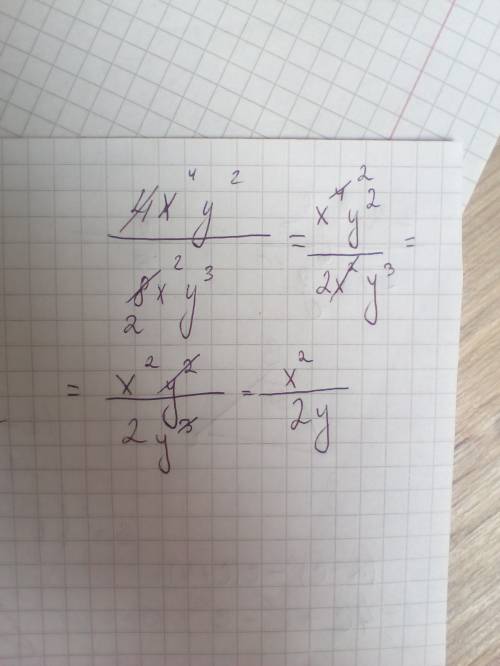 4x⁴y² / 8x²y³ 2 = x⁴y² 2 / 2x²y³ =
= x²y² / 2y³ = x² / 2y